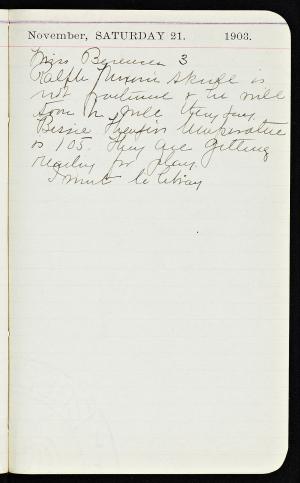 November, SATURDAY 21. 1903.
Miss 3
Ralph skull is
not fractured & he will
soon be well they say.
Bessie temperature
is 105. They are getting
ready for play.
I went to library